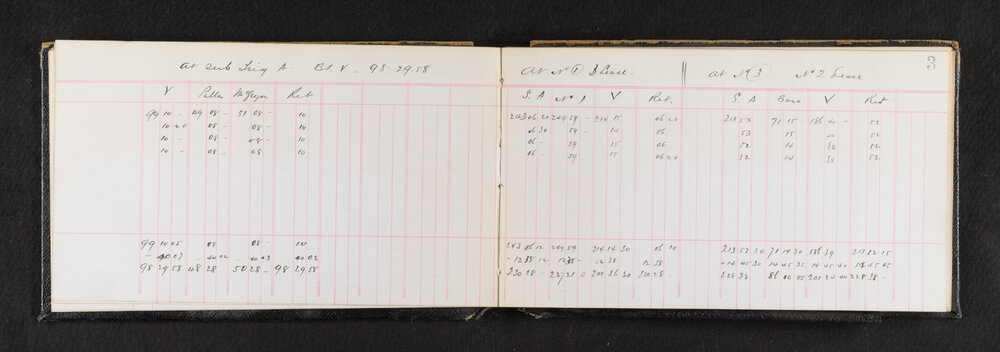 At Sub Trig A. Bs. V. 98.29.58
V Pellm McGregor Ret
99 10 - 49 08 - 51 08 - 10
10 20 08 - 08 - 10
10 - 08 - 08 - 10
10 - 08 - 08 - 10
99 10 05 08 08 - 10
- 40 07 - 40 02 - 40 03 40 02
98 29 58 48 28 50 28 - 98 29 58
At No 1 Lease.
S. A No 1 V Ret.
243 06 20 249 59 - 214 15 06 20
06 30 59 - 14 06
06 - 59 15 06
06 - 59 15 06 20
243 06 12 249 59 214 14 30 06 10
- 12 38 - 12 12 38 - 12 38 12 38
230 28 - 237 21 0 201 36 30 230 28 -
3
At No 3 No 2 Lease
S. A Base V Ret
213 53 71 15 - 186 40 - 53
53 15 40 52
52 14 39 52
52 14 38 52
213 52 30 71 14 30 186 39 213 52 15
14 45 30 14 45 35 14 45 40 14 45 45
228 38 86 00 05 201 24 40 228 38 -